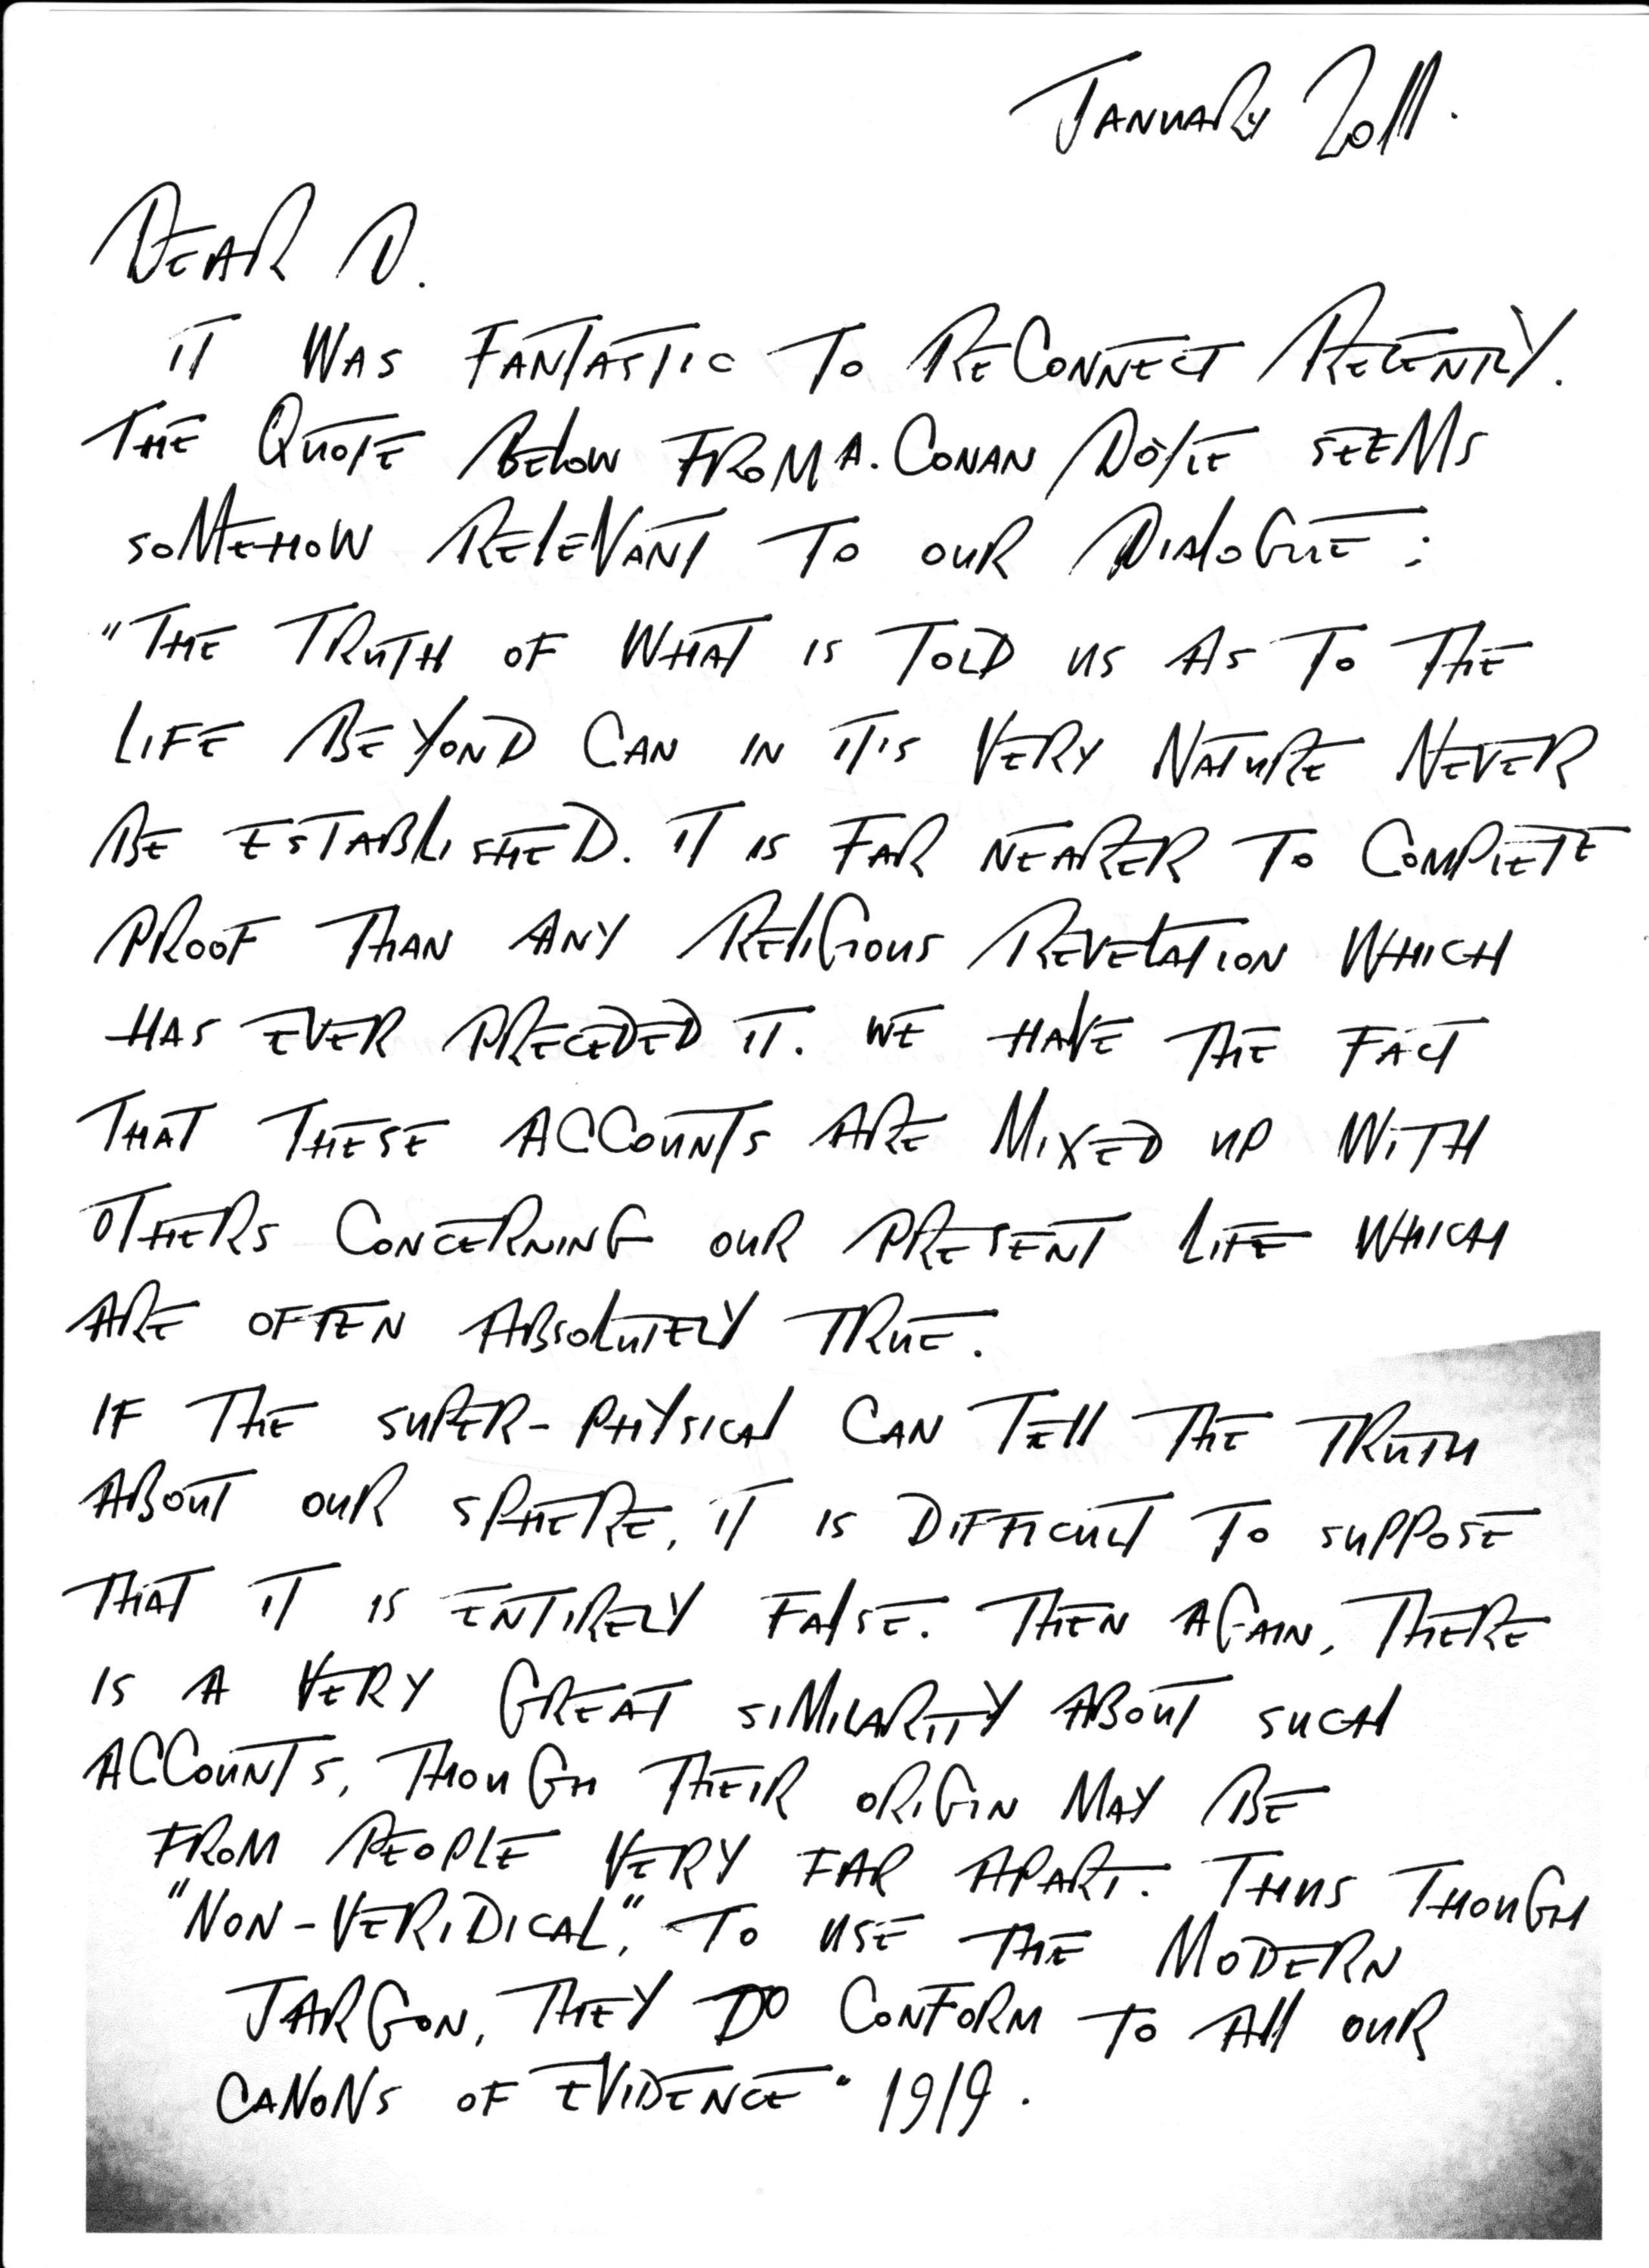 JANUARY 2011.
DEAR D.
IT WAS FANTASTIC TO RECONNECT RECENTLY.
THE QUOTE BELOW FROM A. CONAN DOYLE SEEMS
SOMEHOW RELEVANT TO OUR DIALOGUE:
"THE TRUTH OF WHAT IS TOLD US AS TO THE
LIFE BEYOND CAN IN IT'S VERY NATURE NEVER
BE ESTABLISHED. IT IS FAR NEARER TO COMPLETE
PROOF THAN ANY RELIGIOUS REVELATION WHICH
HAS EVER PRECEDED IT. WE HAVE THE FACT
THAT THESE ACCOUNTS ARE MIXED UP WITH
OTHERS CONCERNING OUR PRESENT LIFE WHICH
ARE OFTEN ABSOLUTELY TRUE.
IF THE SUPER-PHYSICAL CAN TELL THE TRUTH
ABOUT OUR SPHERE, IT IS DIFFICULT TO SUPPOSE
THAT IT IS ENTIRELY FALSE. THEN AGAIN, THERE
IS A VERY GREAT SIMILARITY ABOUT SUCH
ACCOUNTS, THOUGH THEIR ORIGIN MAY BE
FROM PEOPLE VERY FAR APART. THUS THOUGH
"NON-VERIDICAL", TO USE THE MODERN
JARGON, THEY DO CONFORM TO ALL OUR
CANONS OF EVIDENCE" 1919.